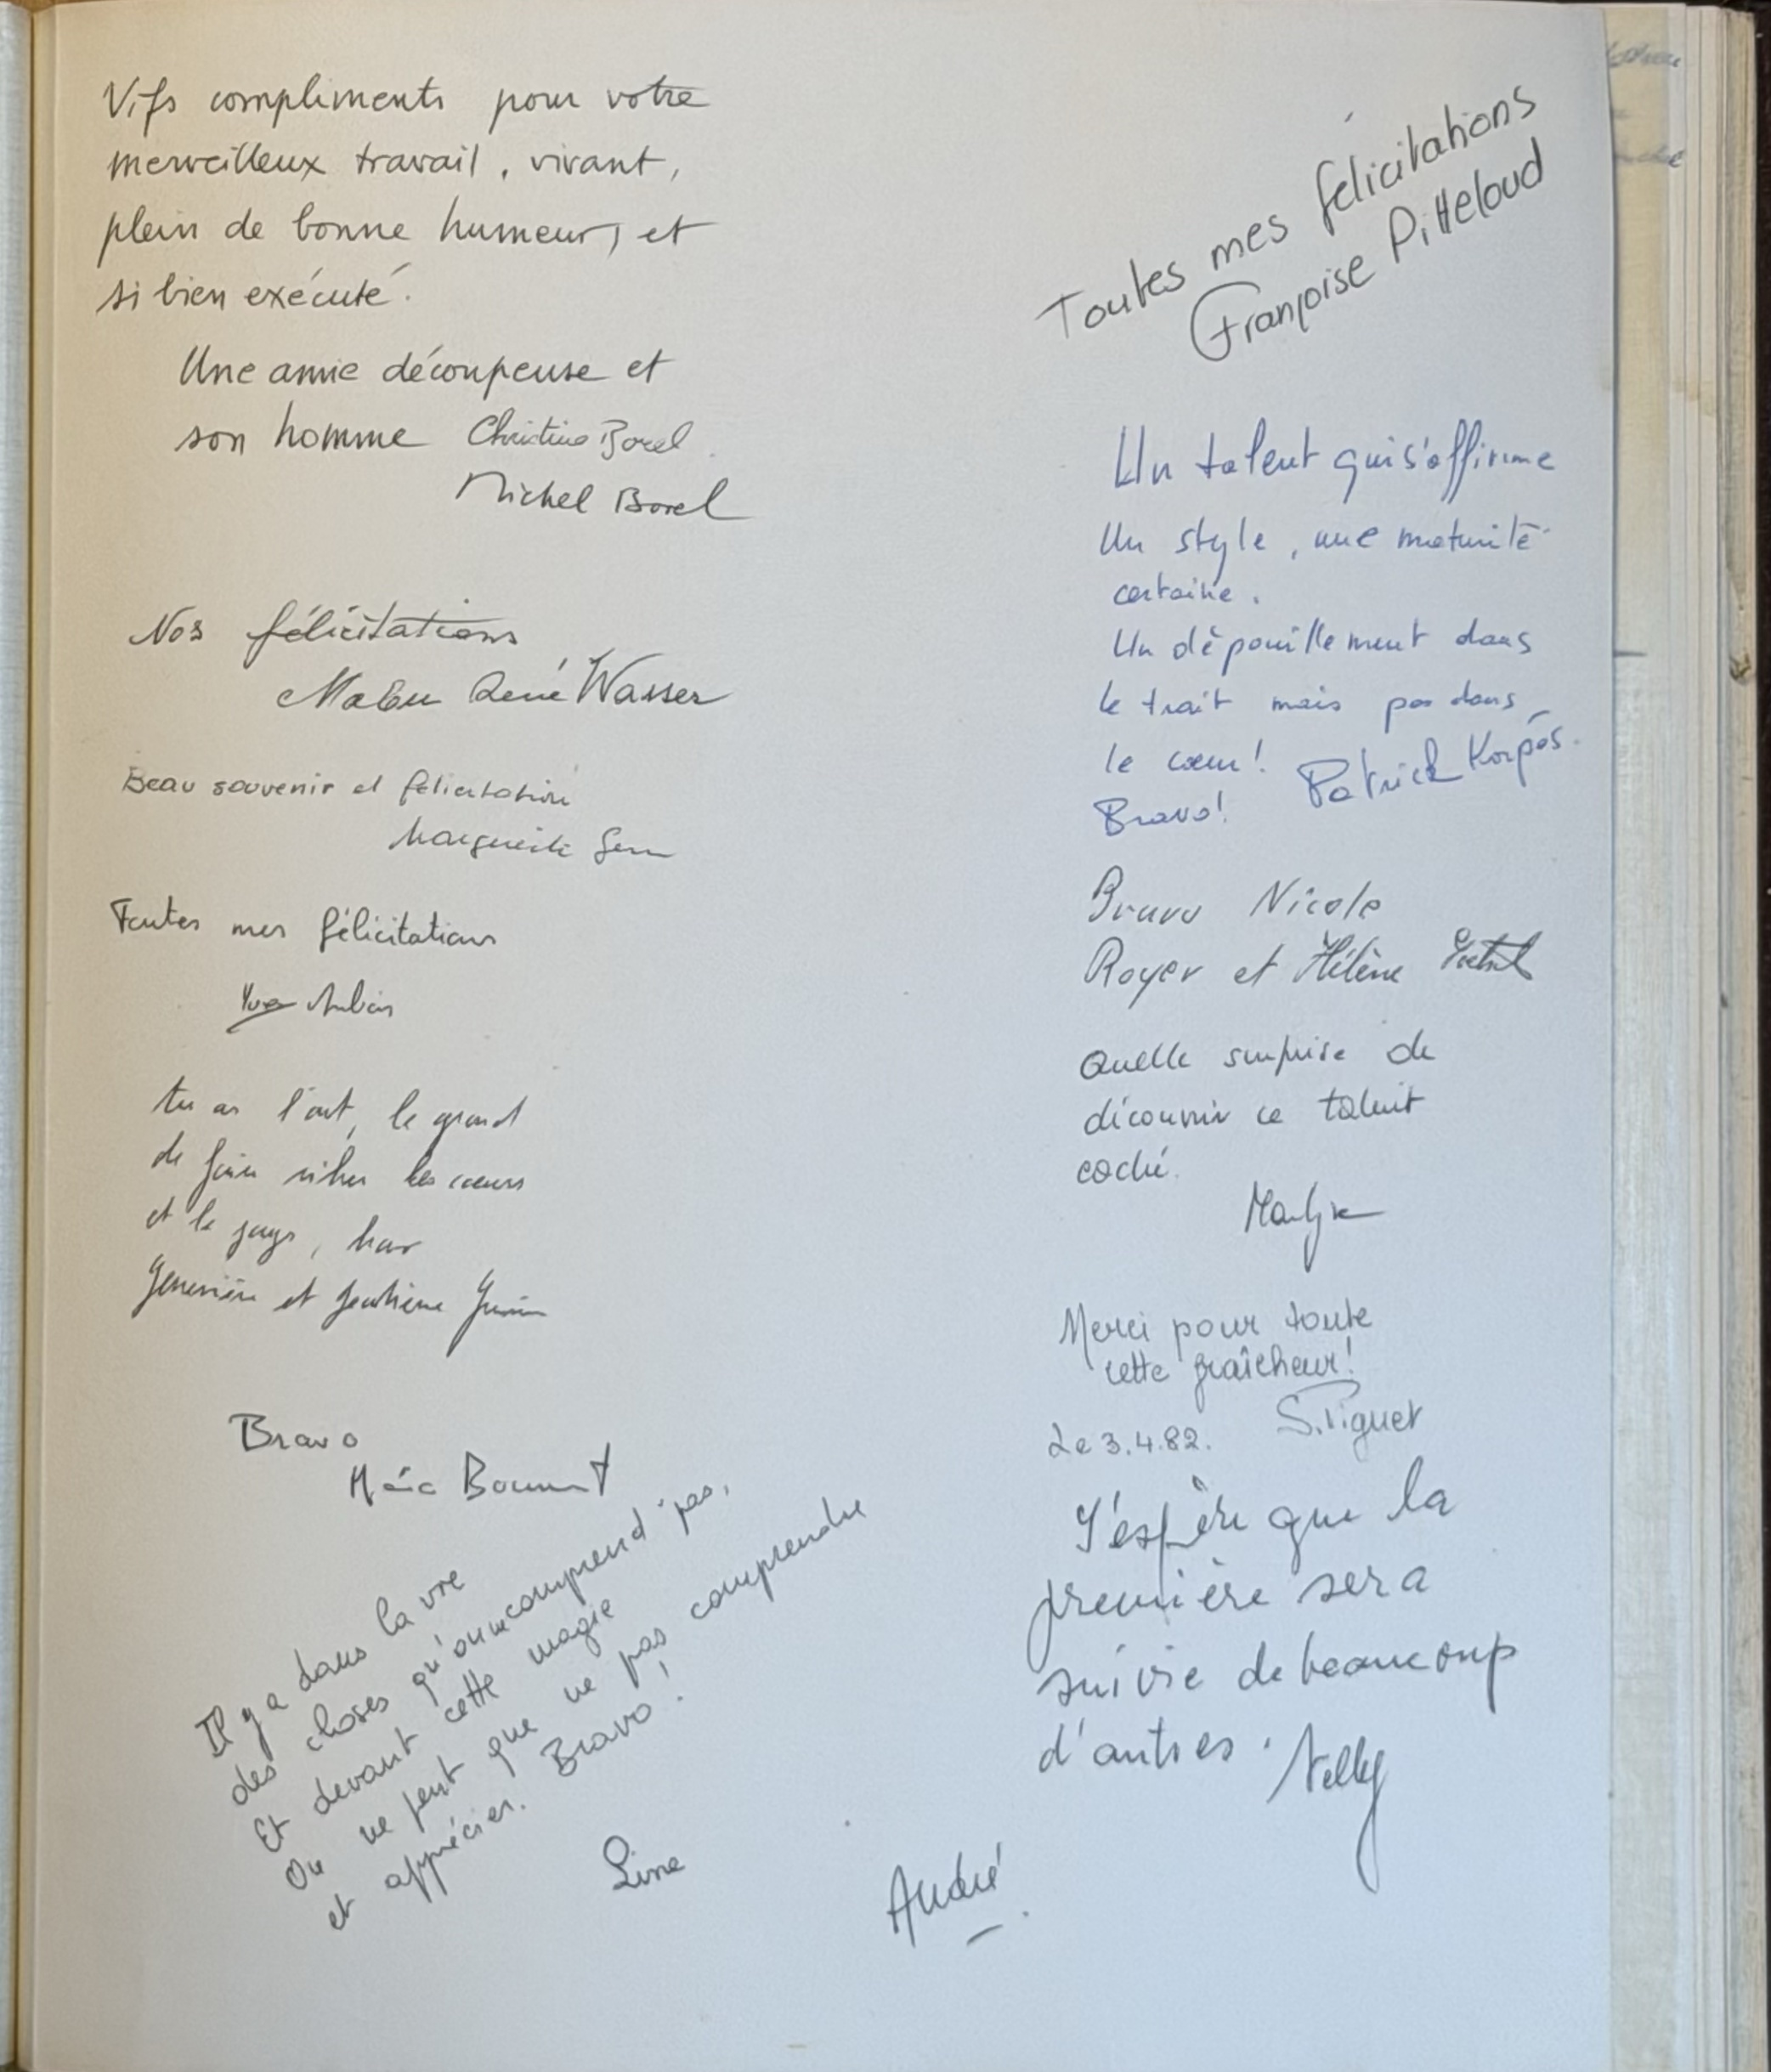 Vifs compliments pour votre
merveilleux travail, vivant,
plein de bonne humeur, et
si bien exécuté.
Une amie découpeuse et
son homme Christine Borel
Michel Borel
Nos félicitations
René Wasser
Beau souvenir et félicitation
Marguerite
Toutes mes félicitations
Yves
tu as l'art, le grand
de faire les cœurs
et le
Geneviève et
Bravo
Il y a dans la vie
des choses qu'on ne comprend pas,
Et devant cette magie
On ne peut que ne pas comprendre
et apprécier. Bravo !
Line
André
Toutes mes félicitations
Françoise Pitteloud
Un talent qui s'affirme
Un style, une maturité
certaine.
Un dépouillement dans
le trait mais pas dans
le cœur !
Bravo ! Patrick Korpès.
Bravo Nicole
Royer et Hélène
Quelle surprise de
découvrir ce talent
caché.
Merci pour toute
cette fraîcheur !
Le 3.4.82. S. Piguet
J'espère que la
première sera
suivie de beaucoup
d'autres. Nelly